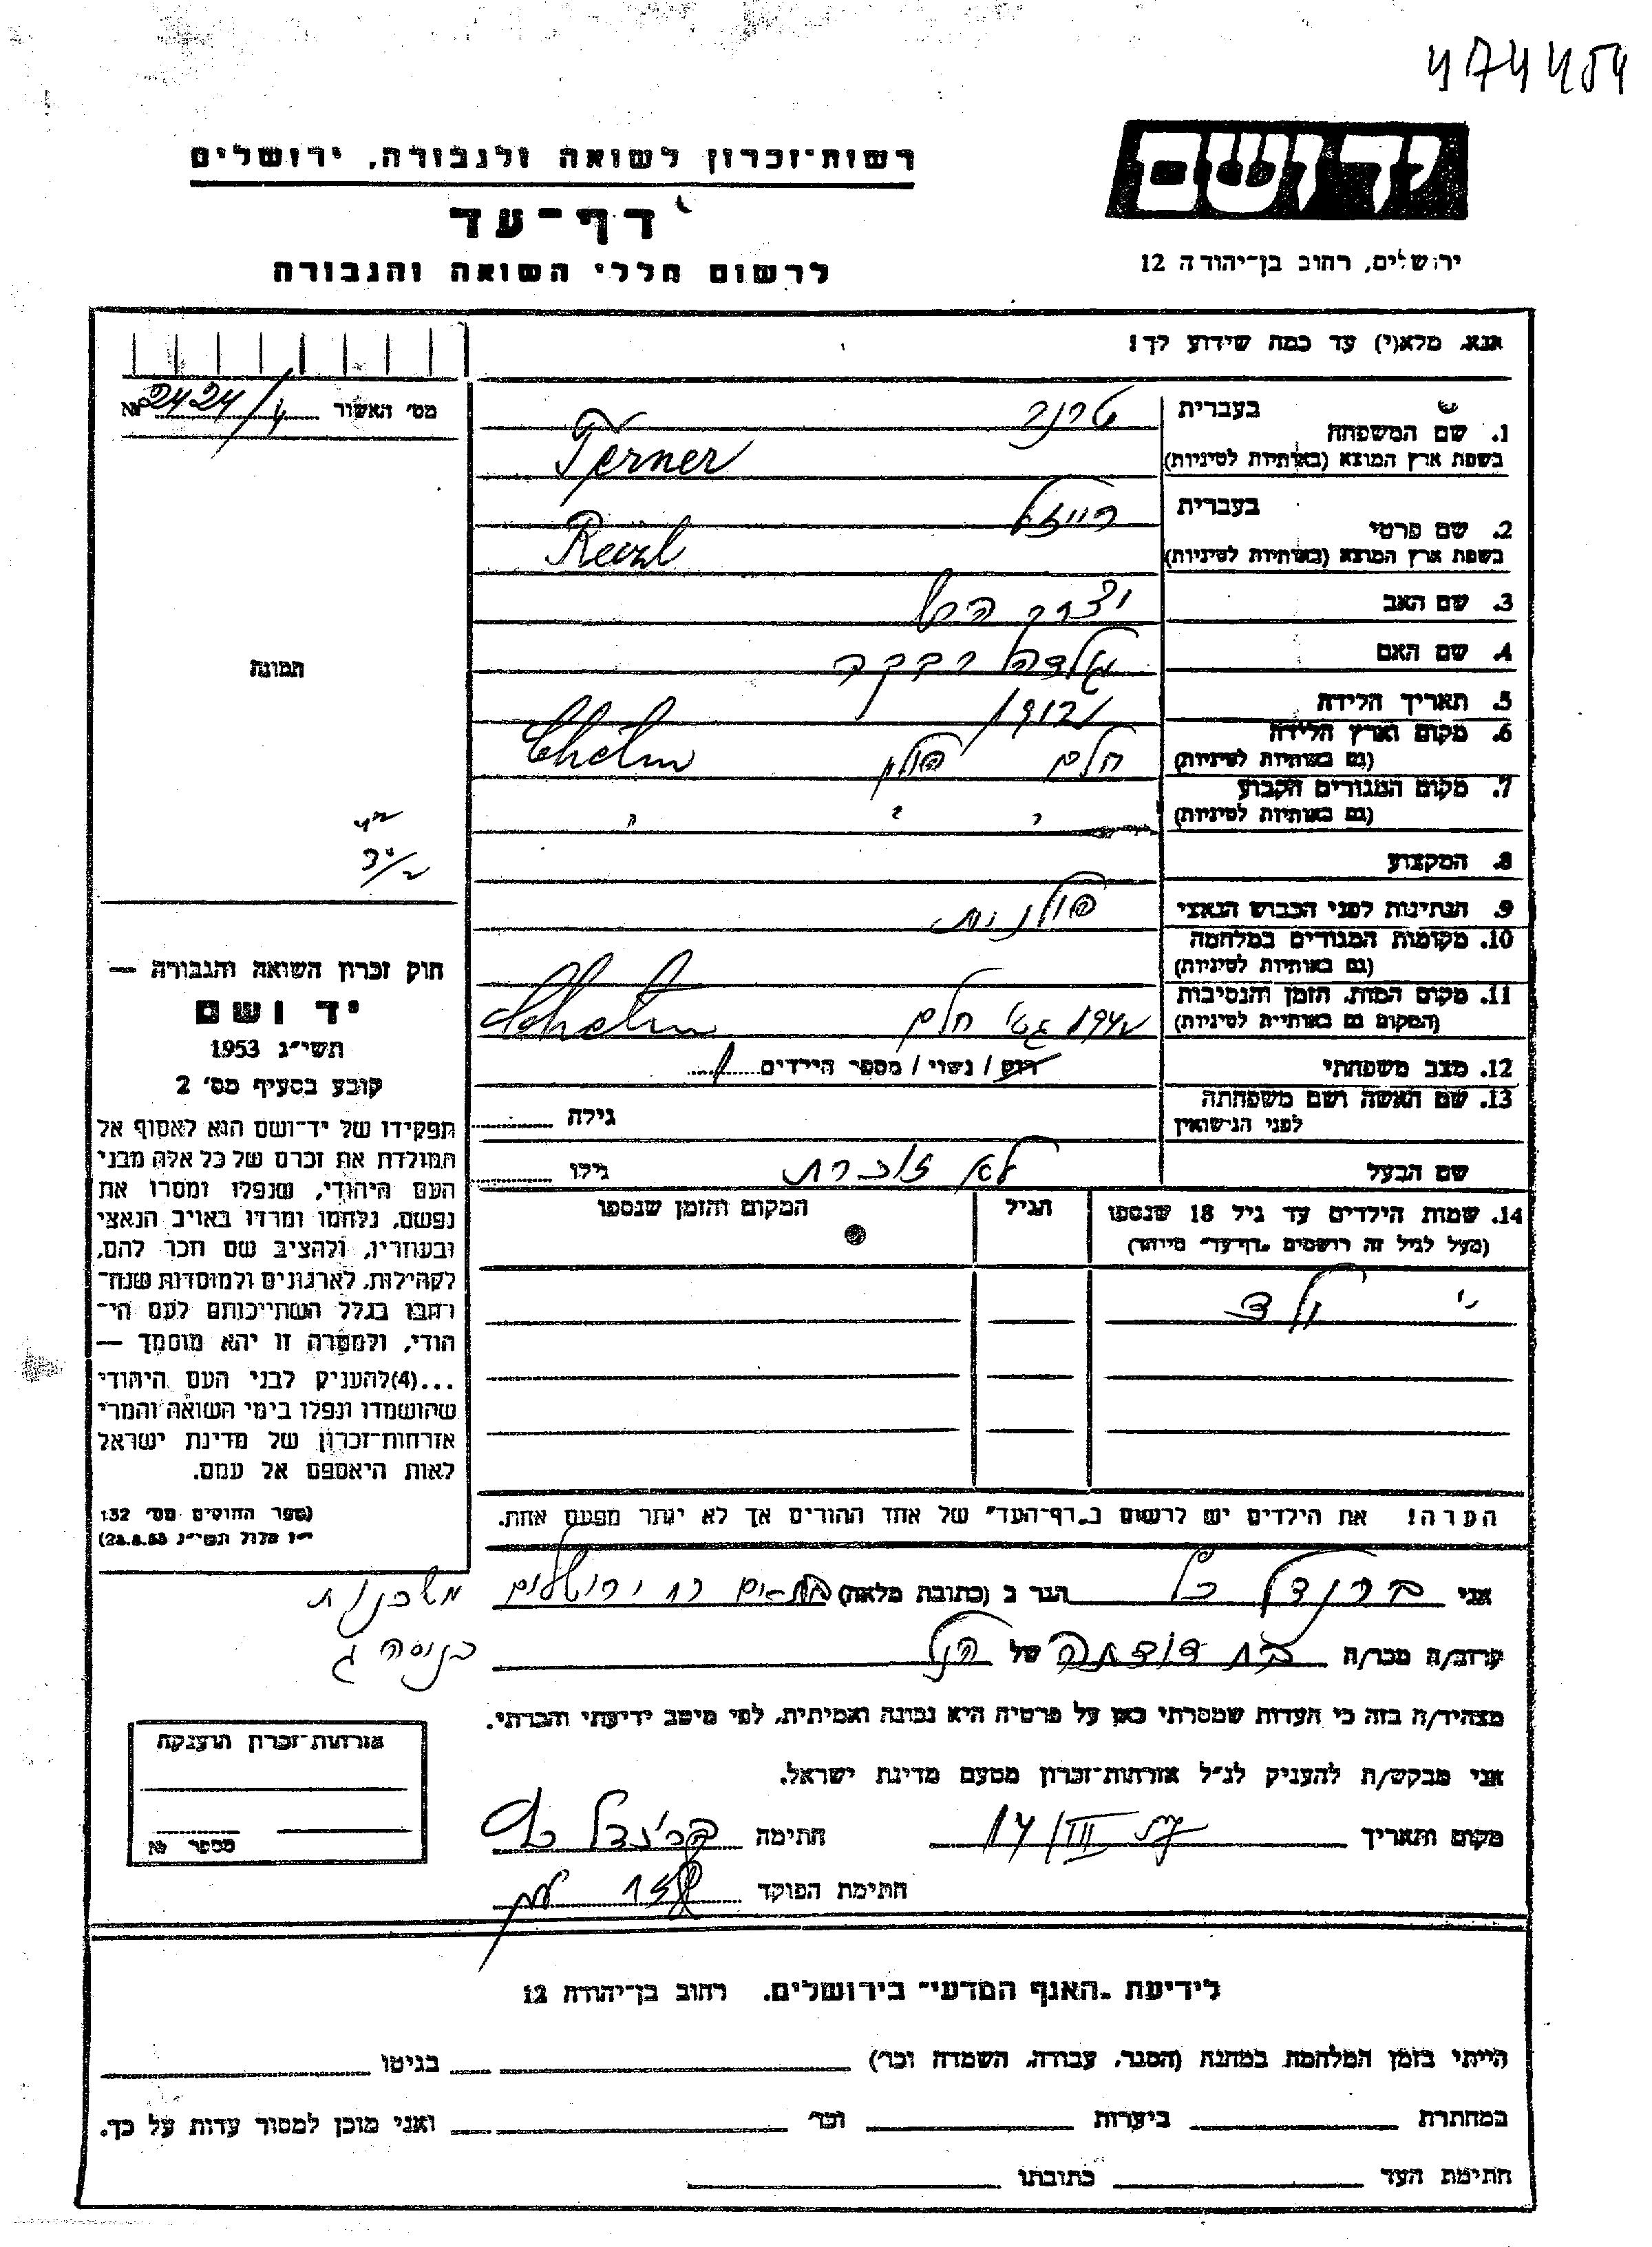 474454
יד ושם
רשות-זכרון לשואה ולגבורה, ירושלים
דף-עד
לרשום חללי השואה והגבורה
ירושלים, רחוב בן-יהודה 12
אנא, מלא(י) עד כמה שידוע לך!
מס' האשור № 2424/4
1. שם המשפחה בעברית טרנר
בשפת ארץ המוצא (באותיות לטיניות) Terner
2. שם פרטי בעברית רייזל
בשפת ארץ המוצא (באותיות לטיניות) Reizl
3. שם האב
4. שם האם גולדה רבקה
5. תאריך הלידה
6. מקום וארץ הלידה (גם באותיות לטיניות) חלם פולין Chelm
7. מקום המגורים הקבוע (גם באותיות לטיניות) " " "
8. המקצוע
9. הנתינות לפני הכבוש הנאצי פולנית
10. מקומות המגורים במלחמה (גם באותיות לטיניות)
11. מקום המות, הזמן והנסיבות (המקום גם באותיות לטיניות) 1942 גטו חלם Chelm
12. מצב משפחתי רווק / נשוי / מספר הילדים 1
13. שם האשה ושם משפחתה לפני הנישואין גילה
שם הבעל לא זוכרת גילו
14. שמות הילדים עד גיל 18 שנספו הגיל המקום והזמן שנספו
(מעל לגיל זה רושמים "דף-עד" מיוחד)
ילד
הערה! את הילדים יש לרשום ב"דף-העד" של אחד ההורים אך לא יותר מפעם אחת.
תמונה
חוק זכרון השואה והגבורה —
יד ושם
תשי"ג 1953
קובע בסעיף מס' 2
תפקידו של יד-ושם הוא לאסוף אל
המולדת את זכרם של כל אלה מבני
העם היהודי, שנפלו ומסרו את
נפשם, נלחמו ומרדו באויב הנאצי
ובעוזריו, ולהציב שם וזכר להם,
לקהילות, לארגונים ולמוסדות שנח-
רבו בגלל השתייכותם לעם הי-
הודי, ולמטרה זו יהא מוסמך —
...(4)להעניק לבני העם היהודי
שהושמדו ונפלו בימי השואה והמרי
אזרחות-זכרון של מדינת ישראל
לאות היאספם אל עמם.
(ספר החוקים מס' 132
י"ז אלול תשי"ג 28.8.53)
אני ברנדל הגר ב (כתובת מלאה) רח ירושלים
קרוב/ה מכר/ה בת דודתה של הנ"ל
מצהיר/ה בזה כי העדות שמסרתי כאן על פרטיה היא נכונה ואמיתית, לפי מיטב ידיעתי והכרתי.
אני מבקש/ת להעניק לנ"ל אזרחות-זכרון מטעם מדינת ישראל.
מקום ותאריך 14/III חתימה
חתימת הפוקד
אזרחות-זכרון הוענקה
מספר №
לידיעת "האגף המדעי" בירושלים. רחוב בן-יהודה 12
הייתי בזמן המלחמה במחנה (הסגר, עבודה, השמדה וכו') בגיטו
במחתרת ביערות וכו' ואני מוכן למסור עדות על כך.
חתימת העד כתובתו